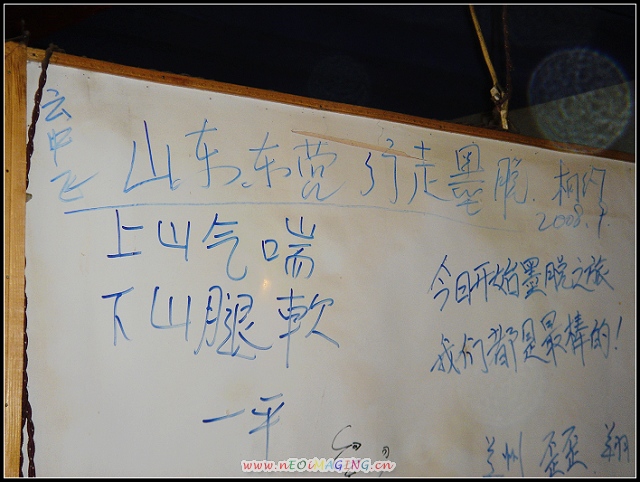 云中飞
山东.东莞 行走墨脱.相约
2008.9.
上山气喘
下山腿軟
一平
今日开始墨脱之旅
我们都是最棒的!
兰州 歪歪 翔
www.nEOiMAGING.cn